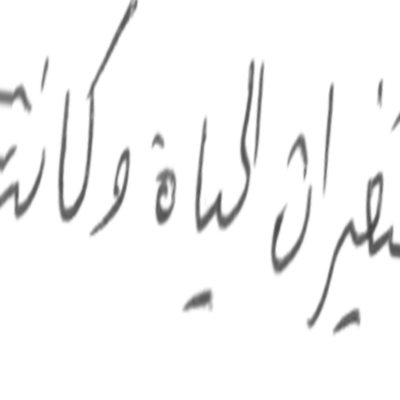 تغيرات الحياة وكانت